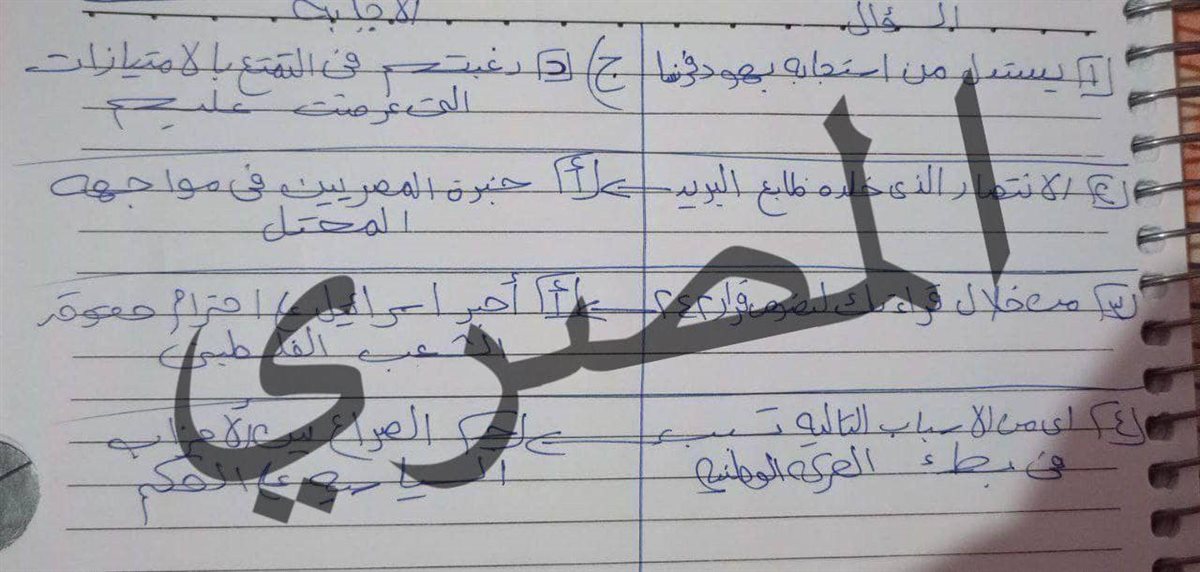 السؤال
الاجابه
1 يستدل من استجابه يهود فرنسا
ج) د رغبتهم فى التمتع بالامتيازات
التى عرضت عليهم
٢ الانتصار الذى خلده طابع البريد
أ خبرة المصريين فى مواجهه
المحتل
٣ من خلال قراءتك لنصوص قرار ٢٤٢
أ أجبر اسرائيل على احترام حقوق
الشعب الفلسطينى
٤ اى من الاسباب التاليه تسبب
فى بطء الحركه الوطنيه
الصراع بين الأحزاب
السياسية على الحكم
المصري